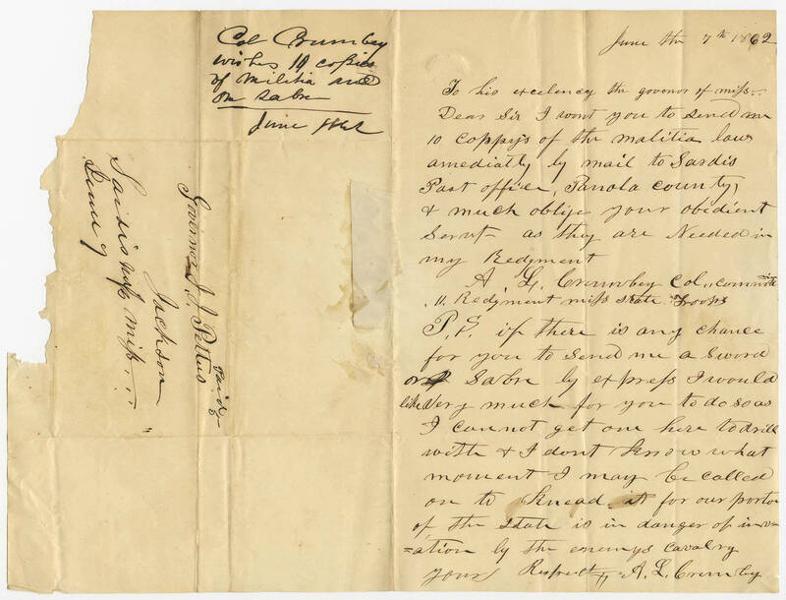 Col Crumbey
wishes 10 copies
of Militia and
on sabre
June 1862
Governor J. J. Pettus
Jackson
Paid 3
Sardis Miss
June 9
June the 7th 1862
To his excelency the govenor of miss..
Dear Sir I wont you to send me
10 coppys of the malitia laws
amediatly by mail to Sardis
Post office, Panola county,
& much oblije your obedient
Servt as they are Needed in
my Redgment
A. L. Crumbey Col
11 Redgment miss state Troops
P.S. if there is any chance
for you to send me a Sword
or Sabre by express I would
like very much for you to do so as
I cannot get one here to drill
with & I dont know what
moment I may be called
on to knead it for our portion
of the State is in danger of inva
=ation by the enemys cavalry
yours Respectfy A. L. Crumby